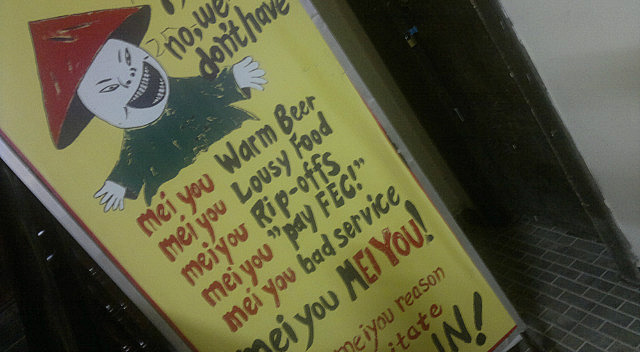 no, we
don't have
mei you Warm Beer
mei you Lousy Food
mei you Rip-offs
mei you "pay FEC!"
mei you bad service
mei you MEI YOU!
meiyou reason
itate
IN!